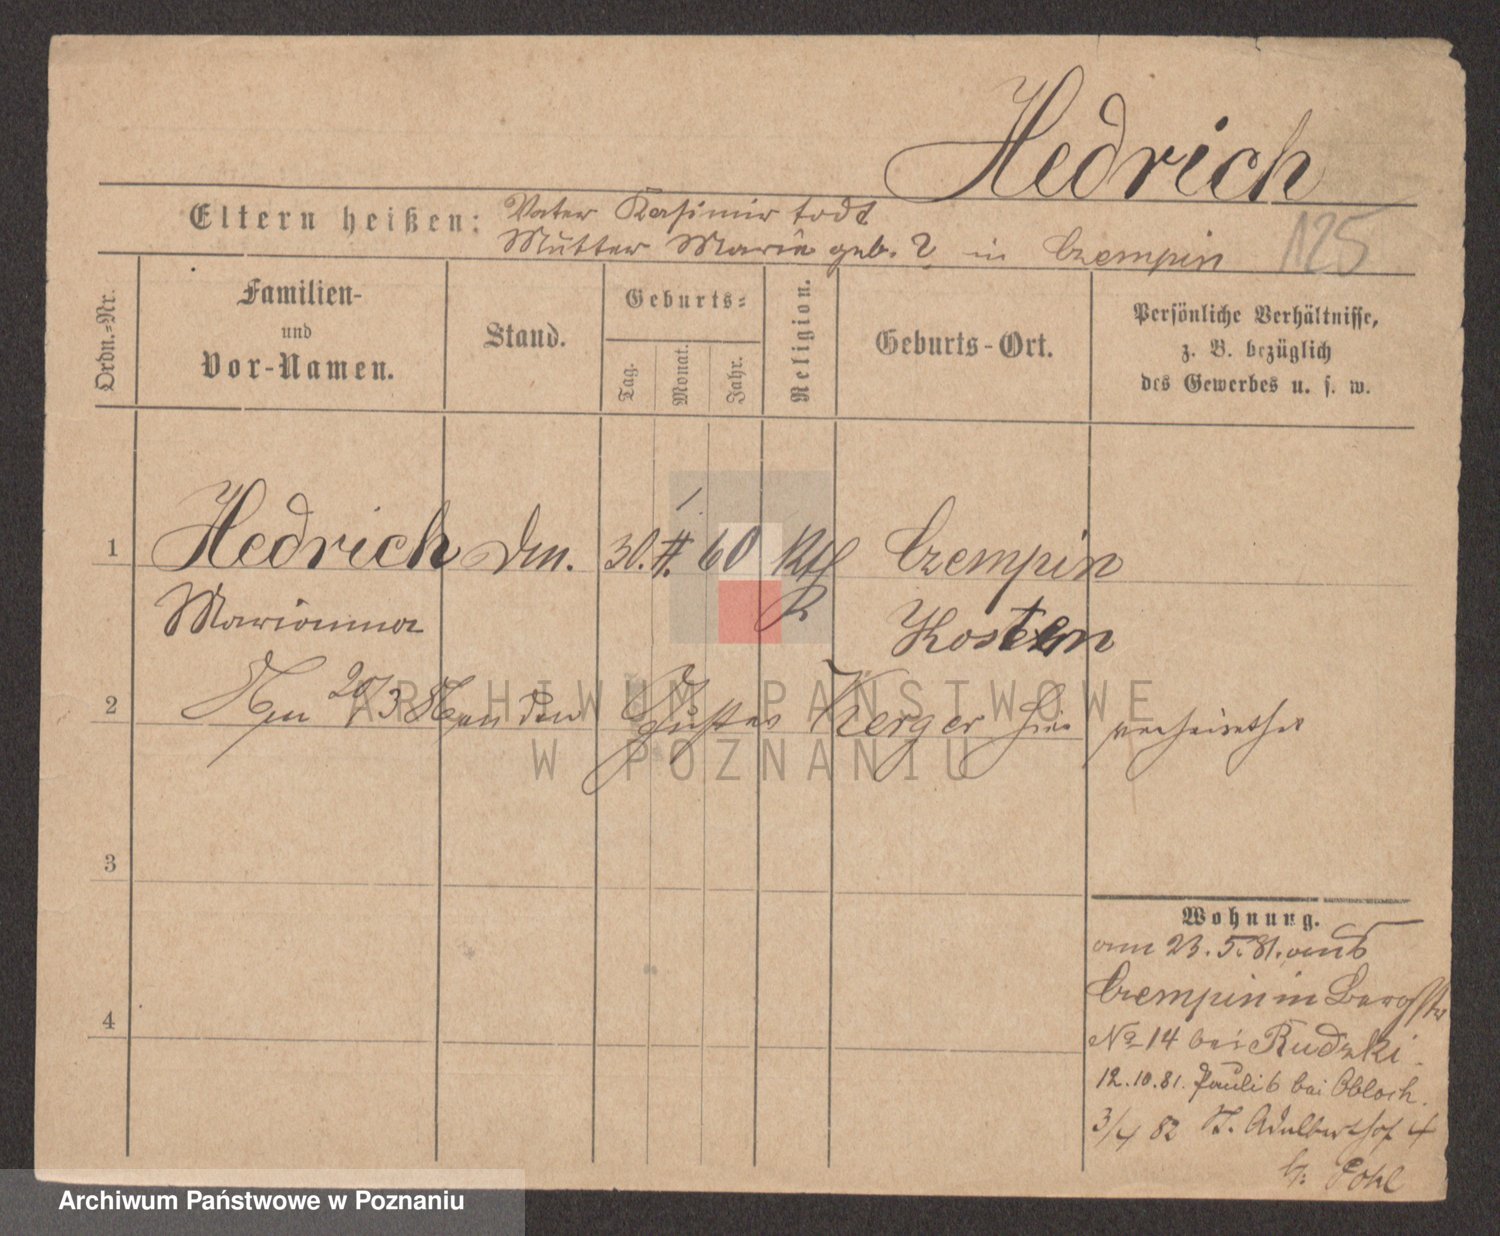 Hedrich
Eltern heißen: Vater Kasimir todt
Mutter Marie geb. ? in Czempin
125
Ordn.-Nr.
Familien-
und
Vor-Namen.
Stand.
Geburts-
Tag.
Monat.
Jahr.
Religion.
Geburts-Ort.
Persönliche Verhältnisse,
z. B. bezüglich
des Gewerbes u. s. w.
1 Hedrich 30. 1. 60 Kth Czempin
Marianna Kosten
2 20/3 Gustav Kerger hier verheirathet
3
4
Wohnung.
am 23.5.81. aus
Czempin in Bergstr
No 14 bei Rudzki.
12.10.81. Pauli 6 bei Obloch.
3/4 82 St. Adalbertstr 4
b. Pohl
ARCHIWUM PAŃSTWOWE
W POZNANIU
Archiwum Państwowe w Poznaniu